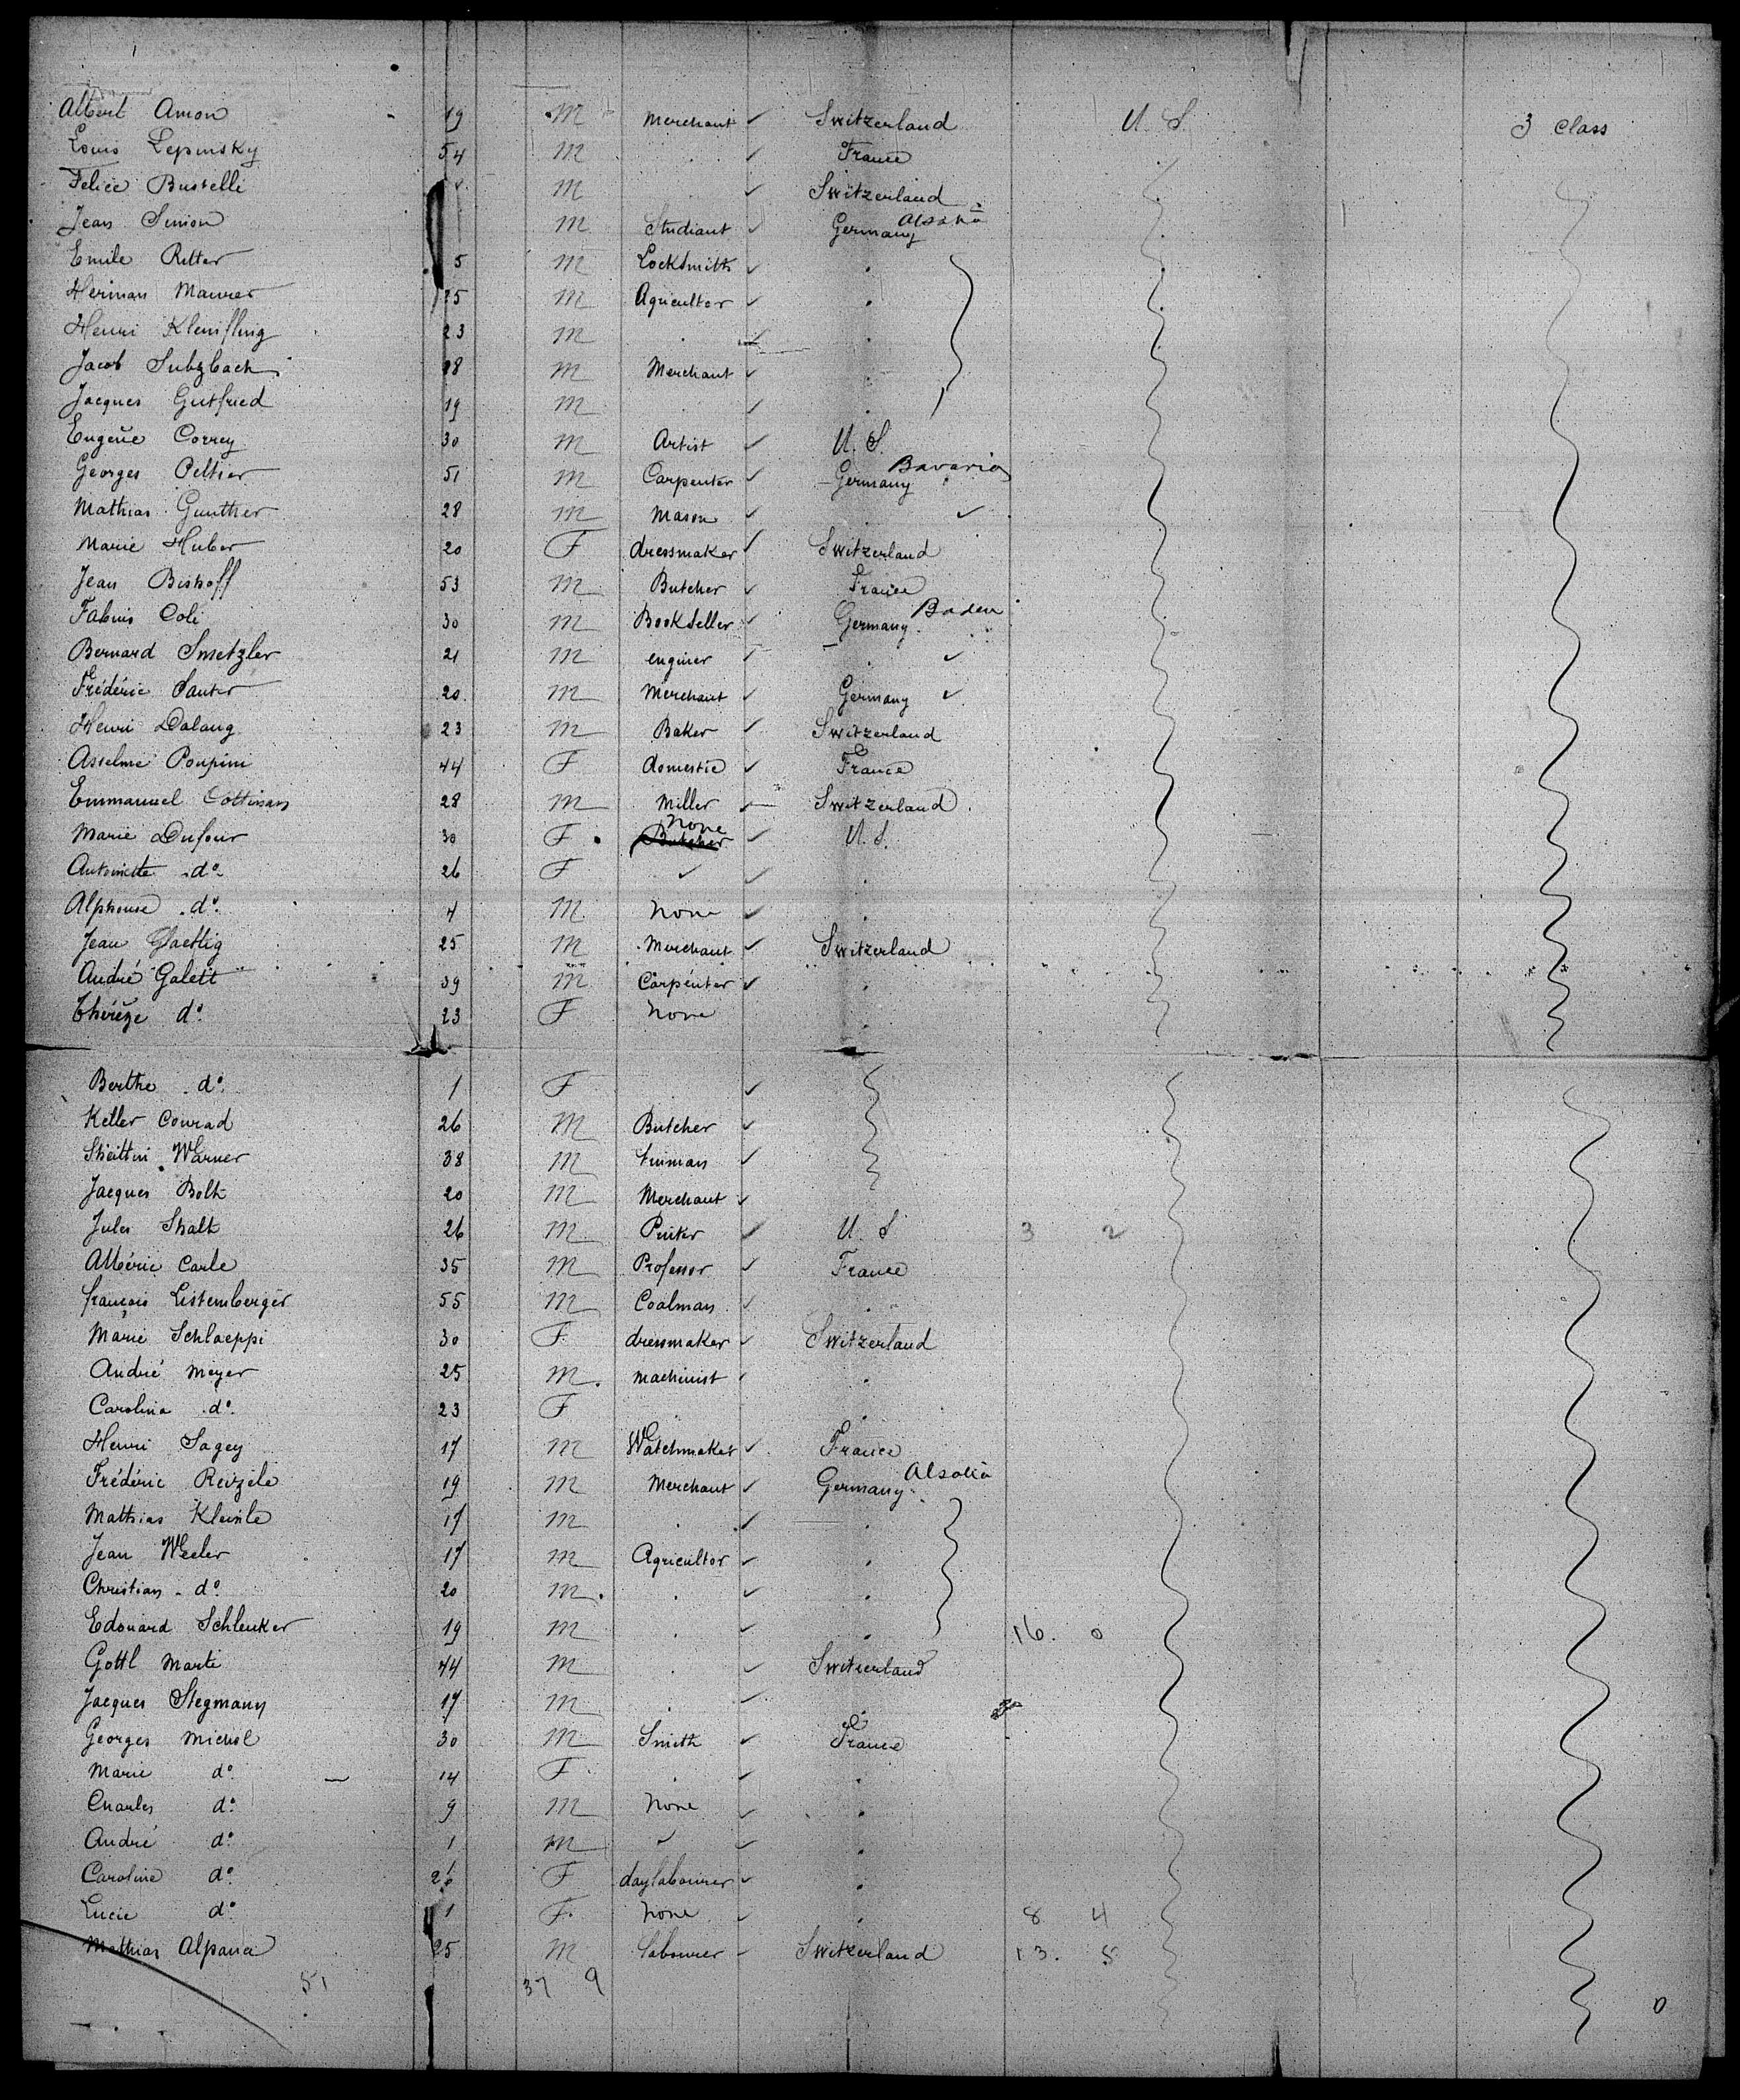 Albert Amon 19 M Merchant ✓ Switzerland U. S. 3 Class
Louis Lepinsky 54 M . ✓ France
Felice Bustelli M . ✓ Switzerland
Jean Simon M Studiant ✓ Germany Alsatia
Emile Ritter 5 M Locksmith ✓ .
Herman Maurer 25 M Agricultor ✓ .
Henri 23 M . ✓ .
Jacob Sulzbach 18 M Merchant ✓ .
Jacques Gutfried 19 M . ✓ .
Eugène Correy 30 M Artist ✓ U. S.
Georges Peltier 51 M Carpenter ✓ Germany Bavaria
Mathias Gunther 28 M Mason ✓ . ✓
Marie Huber 20 F dressmaker ✓ Switzerland
Jean Bishoff 53 M Butcher ✓ France
Fabius Coli 30 M Bookseller ✓ Germany Baden
Bernard Smetzler 21 M enginer ✓ . ✓
Frédéric Sauter 20 M Merchant ✓ Germany ✓
Henri Dalang 23 M Baker ✓ Switzerland
Asselme Poupini 44 F domestic ✓ France
Emmanuel Cottinan 28 M Miller Switzerland
Marie Dufour 30 F Butcher None ✓ U. S.
Antoinette do 26 F ✓ ✓ .
Alphonse do 4 M None ✓ .
Jean Gaettig 25 M Merchant ✓ Switzerland
André Galett 39 M Carpenter ✓ .
Thérèze do 23 F None .
Berthe do 1 F ✓
Keller Conrad 26 M Butcher ✓
Warner 38 M tinman ✓
Jacques Bolt 20 M Merchant ✓
Jules Shalt 26 M ✓ U. S 3 2
Albéric Carle 35 M Professor ✓ France
françois Listemberger 55 M Coalman ✓ .
Marie Schlaeppi 30 F dressmaker ✓ Switzerland
André Meyer 25 M machinist ✓ .
Carolina do 23 F .
Henri Sagey 17 M Watchmaker ✓ France
Frédéric Reizele 19 M Merchant ✓ Germany Alsatia
Matthias Kleinle 17 M . ✓ .
Jean Weeler 17 M Agricultor ✓ .
Christian do 20 M . ✓ .
Edouard Schlenker 19 M . ✓ . 16. 0
Gottl Marti 44 M . ✓ Switzerland
Jacques Stegmann 17 M . ✓ .
Georges Michel 30 M Smith ✓ France
Marie do 14 F . ✓ .
Charles do 9 M None ✓ .
André do 1 M ✓ ✓ .
Caroline do 26 F daylabourer ✓ .
Lucie do 1 F None ✓ . 8 4
Mathias Alpana 25 M labourer Switzerland 13. 5
51 37 9
0